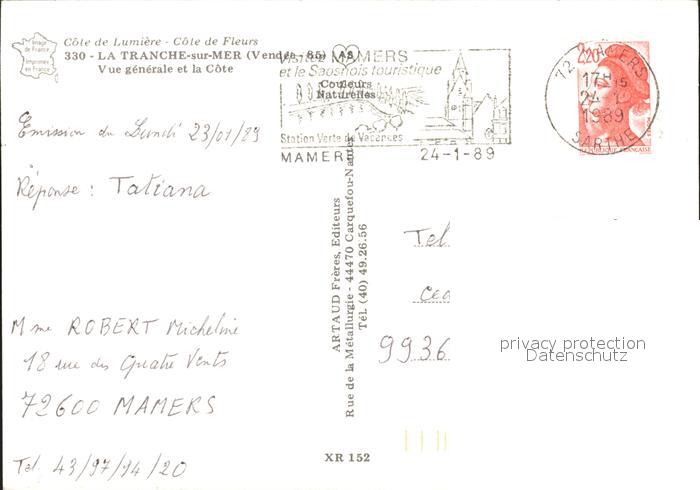 Image
de France
Imprimés
en France
Côte de Lumière - Côte de Fleurs
330 - LA TRANCHE-sur-MER (Vendée, 85)
Vue générale et la Côte
MAMERS
et le Saosnois touristique
Couleurs
Naturelles
Station Verte de Vacances
MAMERS
24-1-89
72 MAMERS
17H15
24-1
1989
SARTHE
2,20
REPUBLIQUE FRANCAISE
Emission du Lundi 23/01/89
Réponse : Tatiana
Mme ROBERT Micheline
18 rue des Quatre Vents
72600 MAMERS
Tel 43/97/94/20
ARTAUD Frères, Editeurs
Rue de la Métallurgie - 44470 Carquefou-Nantes
Tél. (40) 49.26.56
XR 152
Tel
9936
privacy protection
Datenschutz